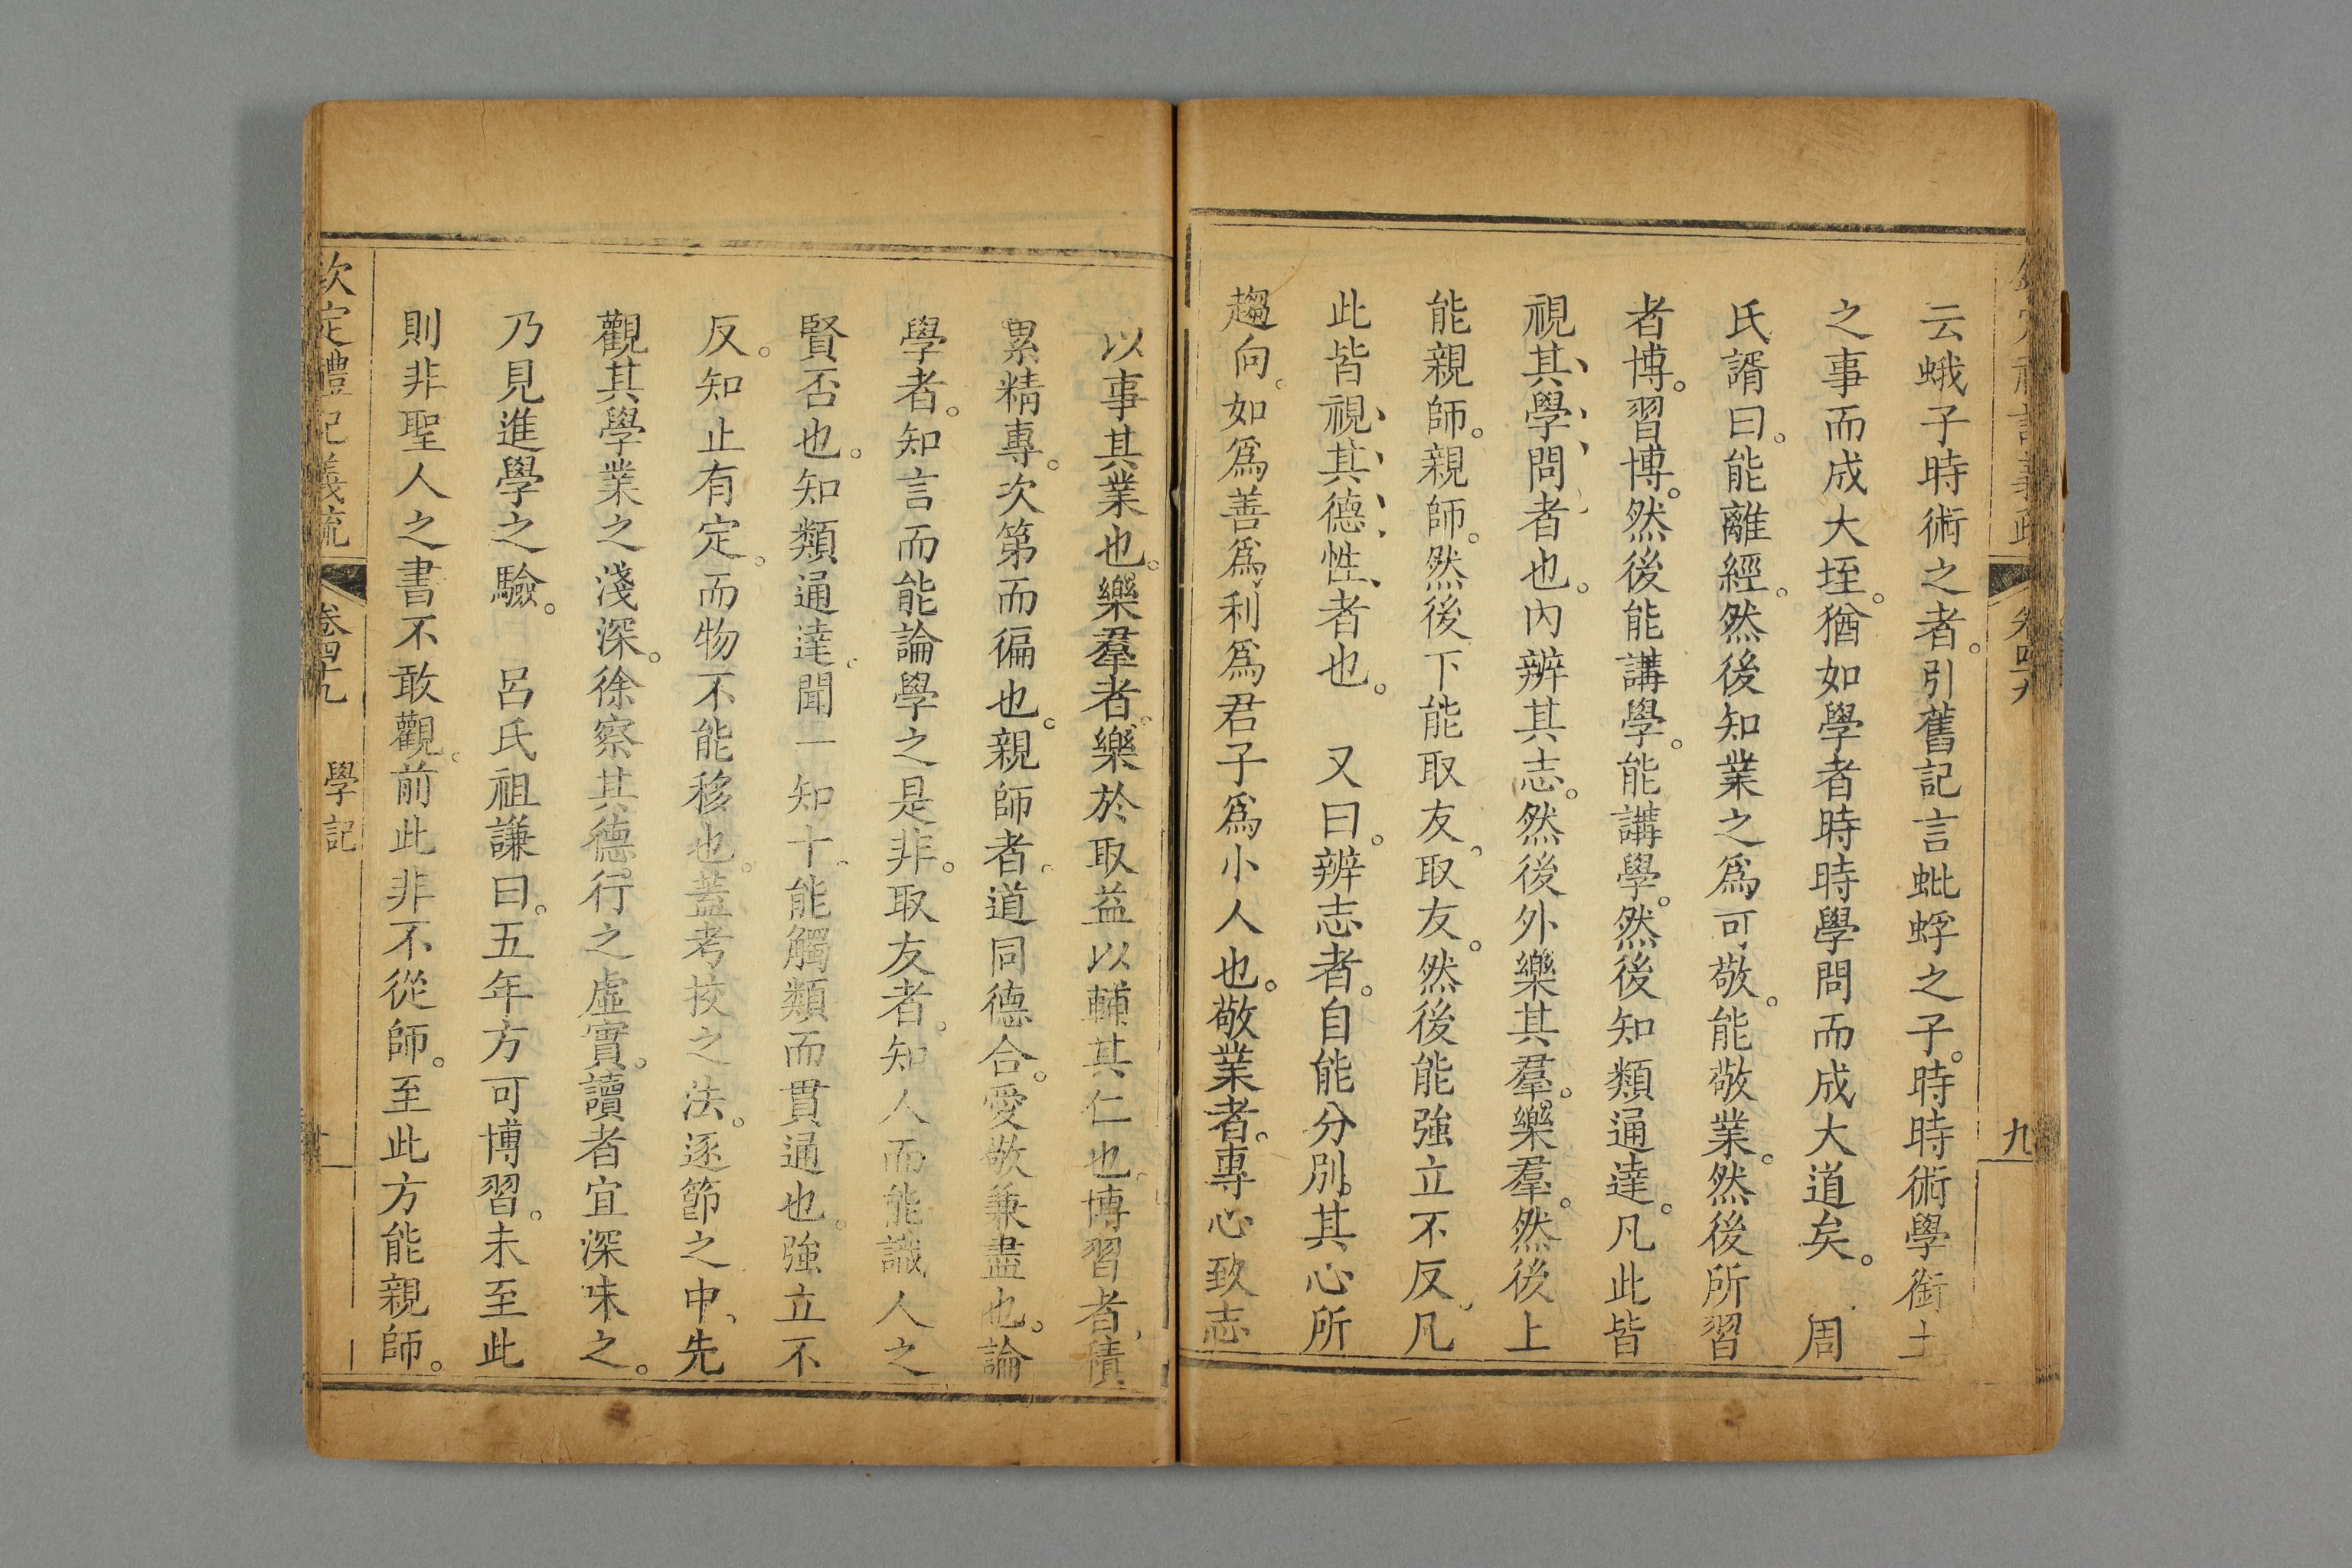 云蛾子時術之者。引舊記言蚍蜉之子。時時術學銜土
之事而成大垤。猶如學者時時學問而成大道矣。　周
氏諝曰。能離經。然後知業之爲可敬。能敬業。然後所習
者博。習博。然後能講學。能講學。然後知類通達。凡此皆
視其學問者也。內辨其志。然後外樂其羣。樂羣。然後上
能親師。親師。然後下能取友。取友。然後能強立不反。凡
此皆視其德性者也。　又曰。辨志者。自能分別。其心所
趨向。如爲善爲利爲君子爲小人也。敬業者。專心致志
卷四十九
九
以事其業也。樂羣者。樂於取益以輔其仁也。博習者。積
累精專。次第而徧也。親師者。道同德合。愛敬兼盡也。論
學者。知言而能論學之是非。取友者。知人而能識人之
賢否也。知類通達。聞一知十。能觸類而貫通也。強立不
反。知止有定。而物不能移也。蓋考挍之法。逐節之中、先
觀其學業之淺深。徐察其德。行之虛實。讀者宜深味之。
乃見進學之驗。　呂氏祖謙曰。五年方可博習。未至此
則非聖人之書不敢觀。前此非不從師。至此方能親師。
欽定禮記義疏　卷四十九　學記